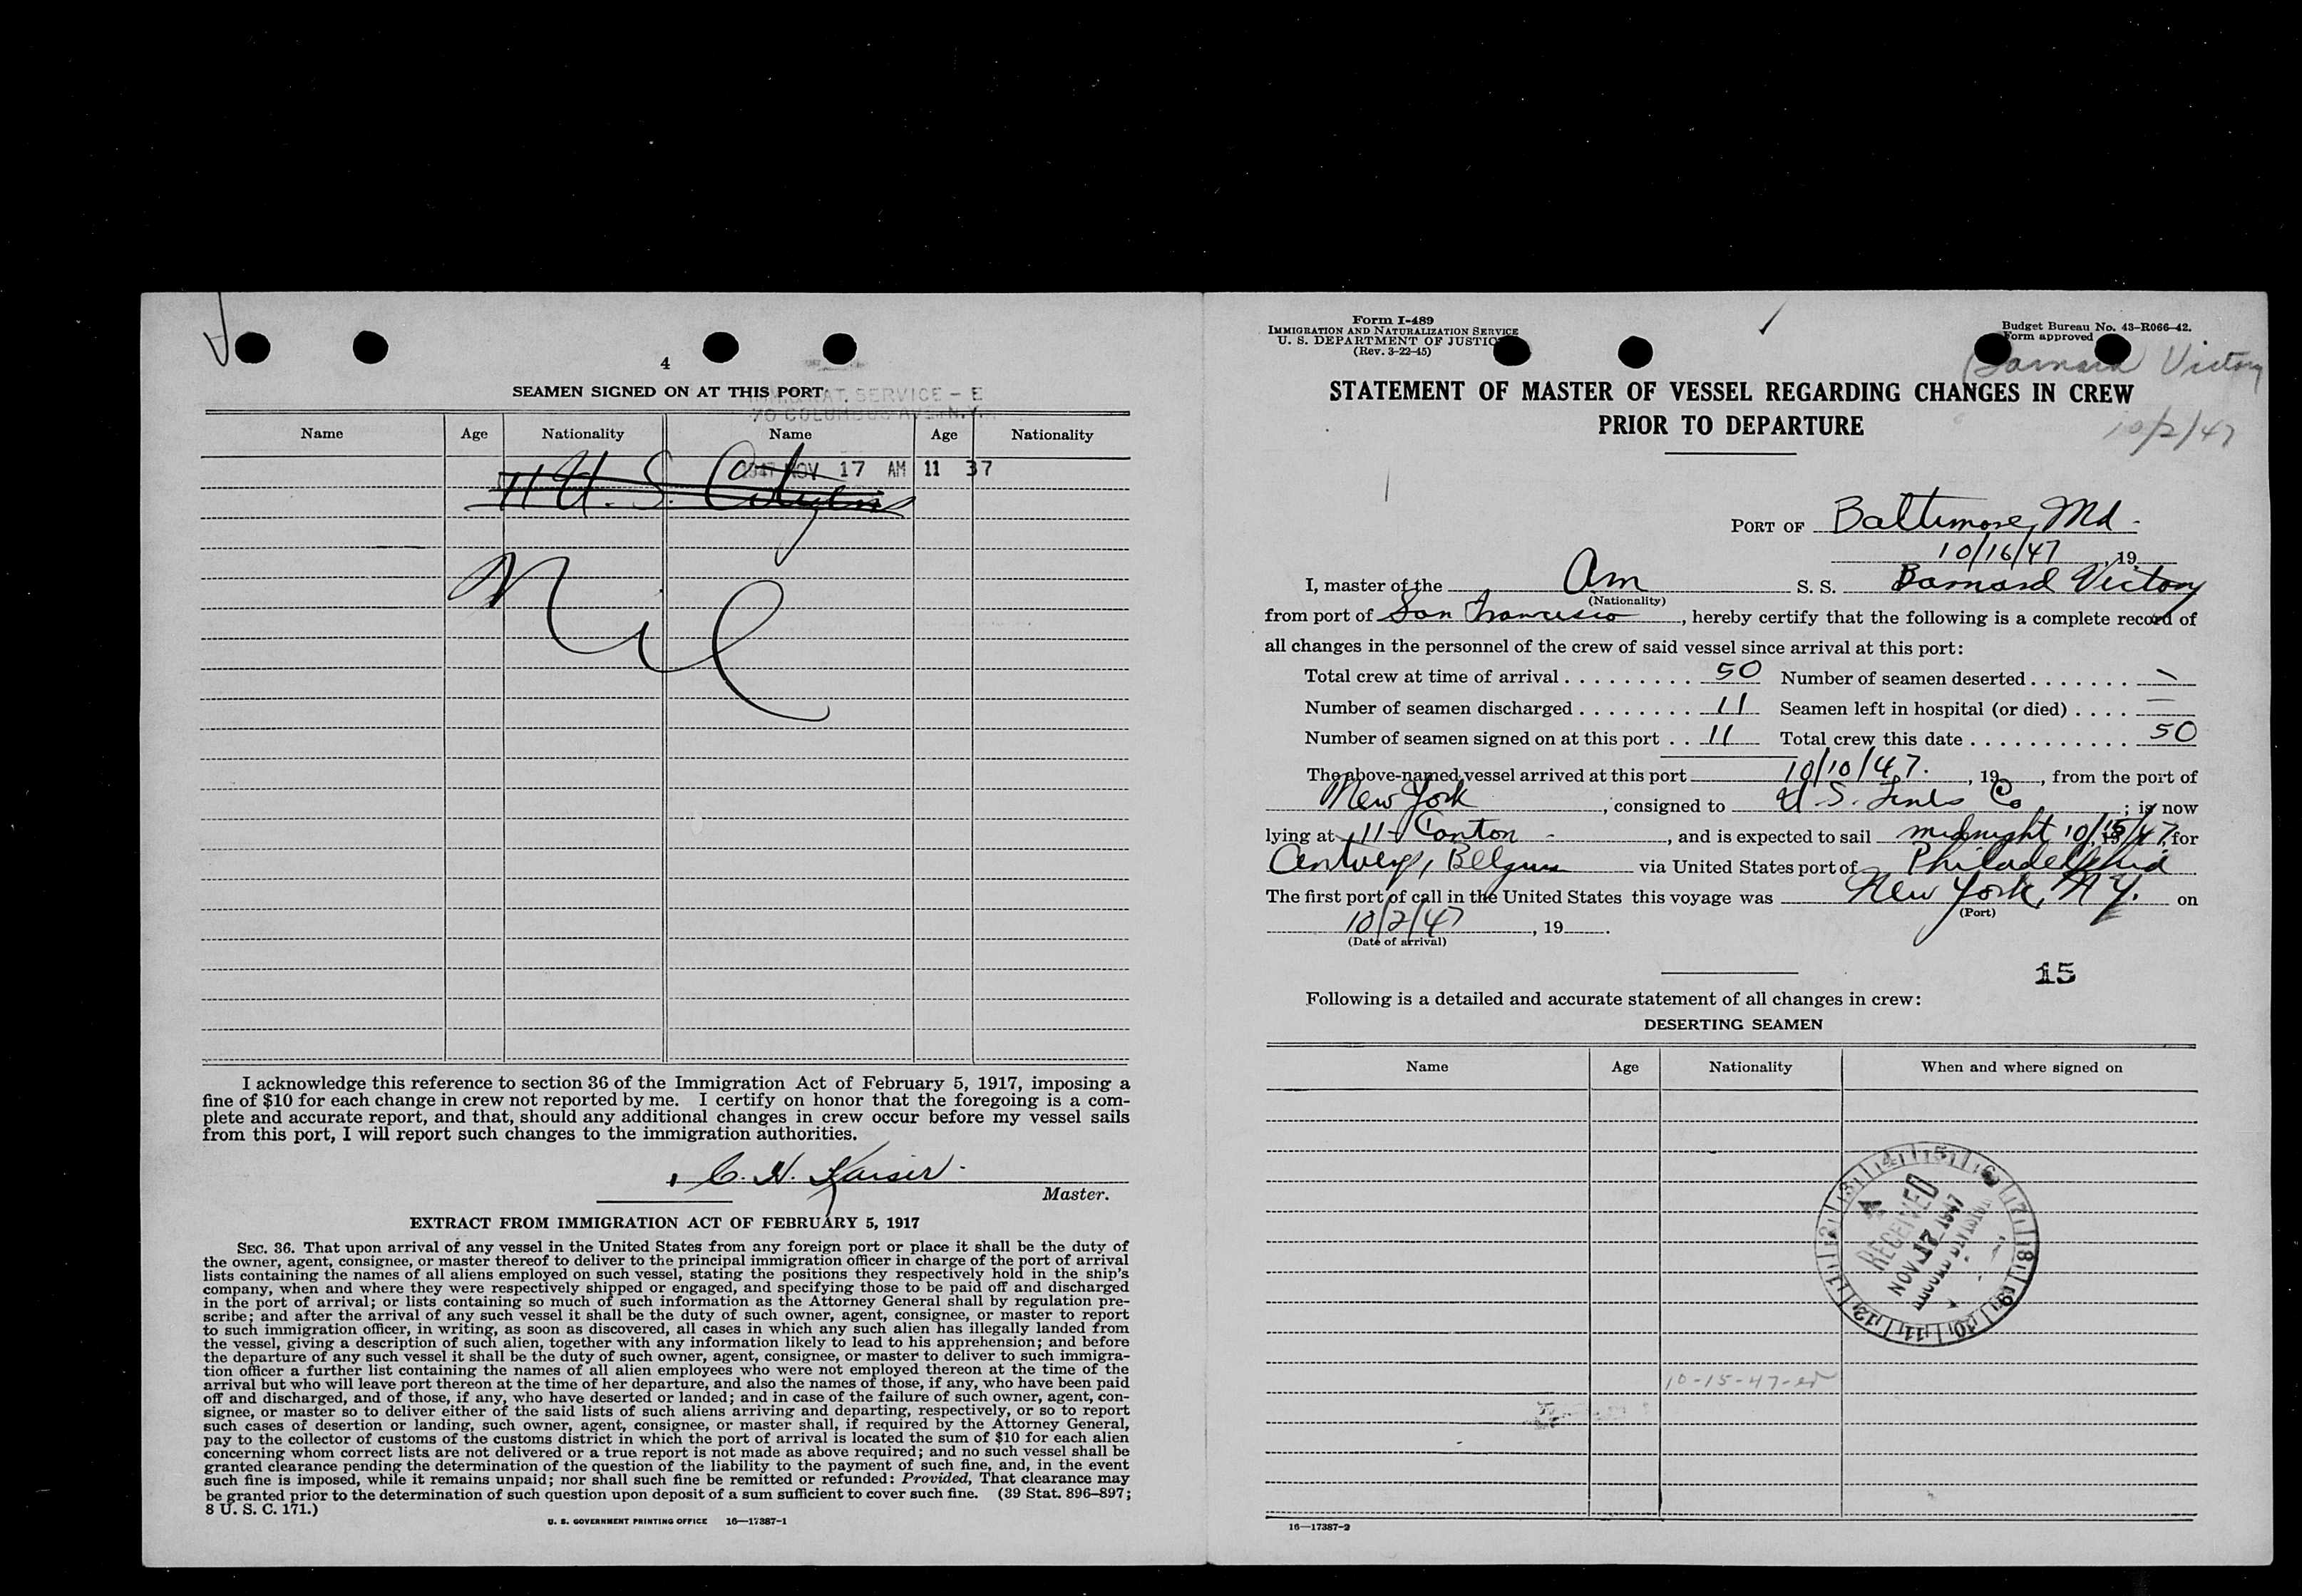 4
SEAMEN SIGNED ON AT THIS PORT
IMMIGRAT. SERVICE - E
70 COLUMBUS AVE. N.Y.
Name Age Nationality Name Age Nationality
1947 NOV 17 AM 11 37
11 U. S. Citizens
Nil
I acknowledge this reference to section 36 of the Immigration Act of February 5, 1917, imposing a
fine of $10 for each change in crew not reported by me. I certify on honor that the foregoing is a com-
plete and accurate report, and that, should any additional changes in crew occur before my vessel sails
from this port, I will report such changes to the immigration authorities.
C. H. Kaiser
Master.
EXTRACT FROM IMMIGRATION ACT OF FEBRUARY 5, 1917
SEC. 36. That upon arrival of any vessel in the United States from any foreign port or place it shall be the duty of
the owner, agent, consignee, or master thereof to deliver to the principal immigration officer in charge of the port of arrival
lists containing the names of all aliens employed on such vessel, stating the positions they respectively hold in the ship's
company, when and where they were respectively shipped or engaged, and specifying those to be paid off and discharged
in the port of arrival; or lists containing so much of such information as the Attorney General shall by regulation pre-
scribe; and after the arrival of any such vessel it shall be the duty of such owner, agent, consignee, or master to report
to such immigration officer, in writing, as soon as discovered, all cases in which any such alien has illegally landed from
the vessel, giving a description of such alien, together with any information likely to lead to his apprehension; and before
the departure of any such vessel it shall be the duty of such owner, agent, consignee, or master to deliver to such immigra-
tion officer a further list containing the names of all alien employees who were not employed thereon at the time of the
arrival but who will leave port thereon at the time of her departure, and also the names of those, if any, who have been paid
off and discharged, and of those, if any, who have deserted or landed; and in case of the failure of such owner, agent, con-
signee, or master so to deliver either of the said lists of such aliens arriving and departing, respectively, or so to report
such cases of desertion or landing, such owner, agent, consignee, or master shall, if required by the Attorney General,
pay to the collector of customs of the customs district in which the port of arrival is located the sum of $10 for each alien
concerning whom correct lists are not delivered or a true report is not made as above required; and no such vessel shall be
granted clearance pending the determination of the question of the liability to the payment of such fine, and, in the event
such fine is imposed, while it remains unpaid; nor shall such fine be remitted or refunded: Provided, That clearance may
be granted prior to the determination of such question upon deposit of a sum sufficient to cover such fine. (39 Stat. 896-897;
8 U. S. C. 171.)
U. S. GOVERNMENT PRINTING OFFICE 16—17387-1
Form I-489
IMMIGRATION AND NATURALIZATION SERVICE
U. S. DEPARTMENT OF JUSTIC
(Rev. 3-22-45)
Budget Bureau No. 43-R066-42.
Form approved
Barnard Victory
10/2/47
STATEMENT OF MASTER OF VESSEL REGARDING CHANGES IN CREW
PRIOR TO DEPARTURE
PORT OF Baltimore, Md.
10/16/47, 19
I, master of the Am S. S. Barnard Victory
(Nationality)
from port of San Francisco, hereby certify that the following is a complete record of
all changes in the personnel of the crew of said vessel since arrival at this port:
Total crew at time of arrival . . . . . . . . . 50 Number of seamen deserted . . . . . . . -
Number of seamen discharged . . . . . . . . 11 Seamen left in hospital (or died) . . . . -
Number of seamen signed on at this port . . 11 Total crew this date . . . . . . . . . . . . 50
The above-named vessel arrived at this port 10/10/47., 19, from the port of
New York, consigned to U. S. Lines Co; is now
lying at 11 Canton -, and is expected to sail midnight 10/15/47, 19, for
Antwerp, Belgium via United States port of Philadelphia
The first port of call in the United States this voyage was New York, N.Y. on
(Port)
10/2/47, 19.
(Date of arrival)
15
Following is a detailed and accurate statement of all changes in crew:
DESERTING SEAMEN
Name Age Nationality When and where signed on
RECEIVED
NOV 17 1947
RECORD DIVISION
1 2 3 4 5 6 7 8 9 10 11 12
10-15-47-ed
16—17387-2